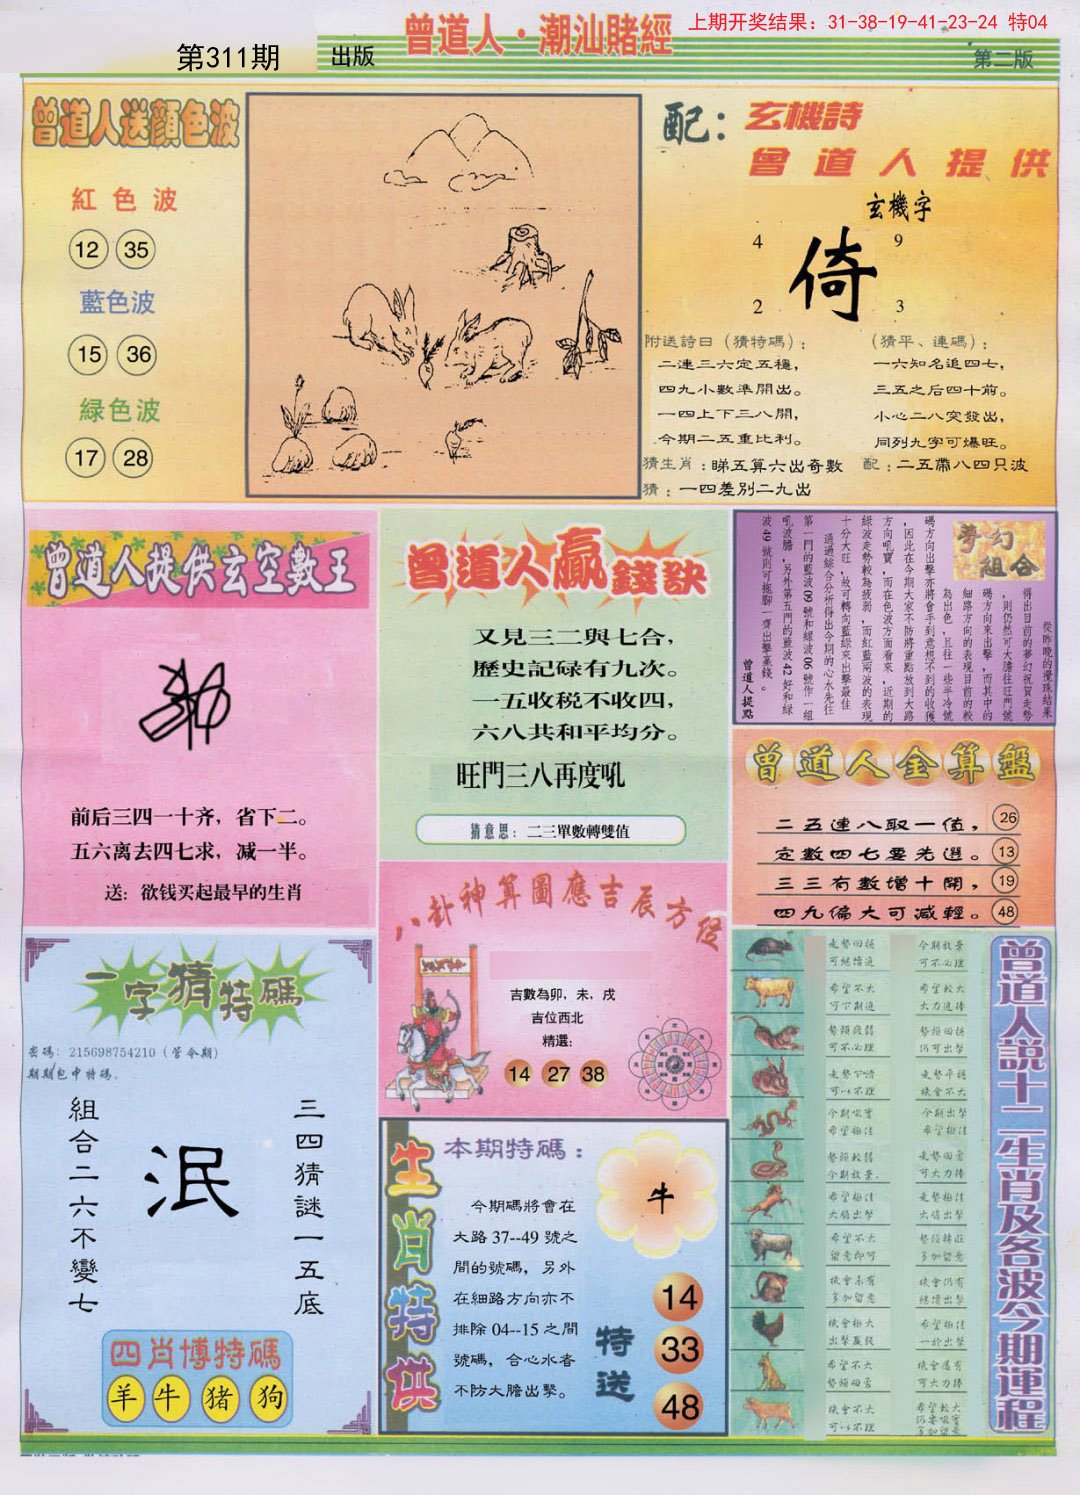 曾道人·潮汕賭經
上期开奖结果：31-38-19-41-23-24 特04
第311期
出版
第二版
曾道人送顏色波
紅色波
12 35
藍色波
15 36
緑色波
17 28
配：玄機詩
曾道人提供
玄機字
4 9
倚
2 3
附送詩曰（猜特碼）：
二連三六定五穩，
四九小數準開出。
一四上下三八開，
今期二五重比利。
（猜平、連碼）：
一六知名追四七，
三五之后四十前。
小心二八突發出，
同列九字可爆旺。
猜生肖：睇五算六出奇數
配：二五帶八四只波
猜：一四差別二九出
曾道人提供玄空數王
前后三四一十齐，省下二。
五六离去四七求，减一半。
送：欲钱买起最早的生肖
曾道人贏錢訣
又見三二與七合，
歷史記碌有九次。
一五收税不收四，
六八共和平均分。
旺門三八再度吼
猜意思：二三單數轉雙值
夢幻組合
從昨晚的攪珠結果
得出目前的夢幻祝賀走勢
，則仍然可大膽往旺門號
碼方向來出擊，而其中的
細路方向的表現目前的較
為出色，且往一些半冷號
碼方向出擊亦將會手到意想不到的收獲
，因此在今期大家不防將重點放到大路
方向吼寶，而在色波方面看來，近期的
綠波走勢較為疲弱，而紅藍兩波的表現
十分大旺，故可轉向藍綠來出擊最佳
通過綜合分析得出今期的心水先往
第一門的藍波09號和綠波06號作一組
吼波膽，另外第五門的藍波42好和綠
波49號則可拖腳一齊出擊贏錢。
曾道人提點
曾道人金算盤
二五連八取一值， 26
定數四七要先選。 13
三三有數增十開， 19
四九偏大可減輕。 48
八卦神算圖應吉辰方位
吉數為卯，未，戌
吉位西北
精選：
14 27 38
一字猜特碼
密碼：215698754210（管今期）
期期包中特碼。
組合二六不變七
泯
三四猜謎一五底
四肖博特碼
羊 牛 猪 狗
生肖特供
本期特碼：
今期碼將會在
大路37--49號之
間的號碼，另外
在細路方向亦不
排除04--15之間
號碼，合心水者
不防大膽出擊。
牛
特送
14
33
48
曾道人說十二生肖及各波今期運程
走勢回穩
可繼續追
今期放棄
可不必理
希望不大
可下期追
希望較大
大力追捧
勢頭疲弱
可不必理
勢頭回穩
仍可出擊
可以不理
走勢平穩
機會不大
今期吼實
希望極佳
今期出擊
希望極佳
勢頭較弱
今期放棄.
走勢回勇
可大力捧
希望極佳
大膽出擊
走勢極佳
大膽出擊
希望不大
留意即可
多加留意
機會未有
多加留意
機會仍有
繼續出擊
機會極大
出擊贏錢
希望極佳
一於出擊
希望不大
勢頭回勇
機會還有
可大力捧
機會不大
可以不理
希望較大